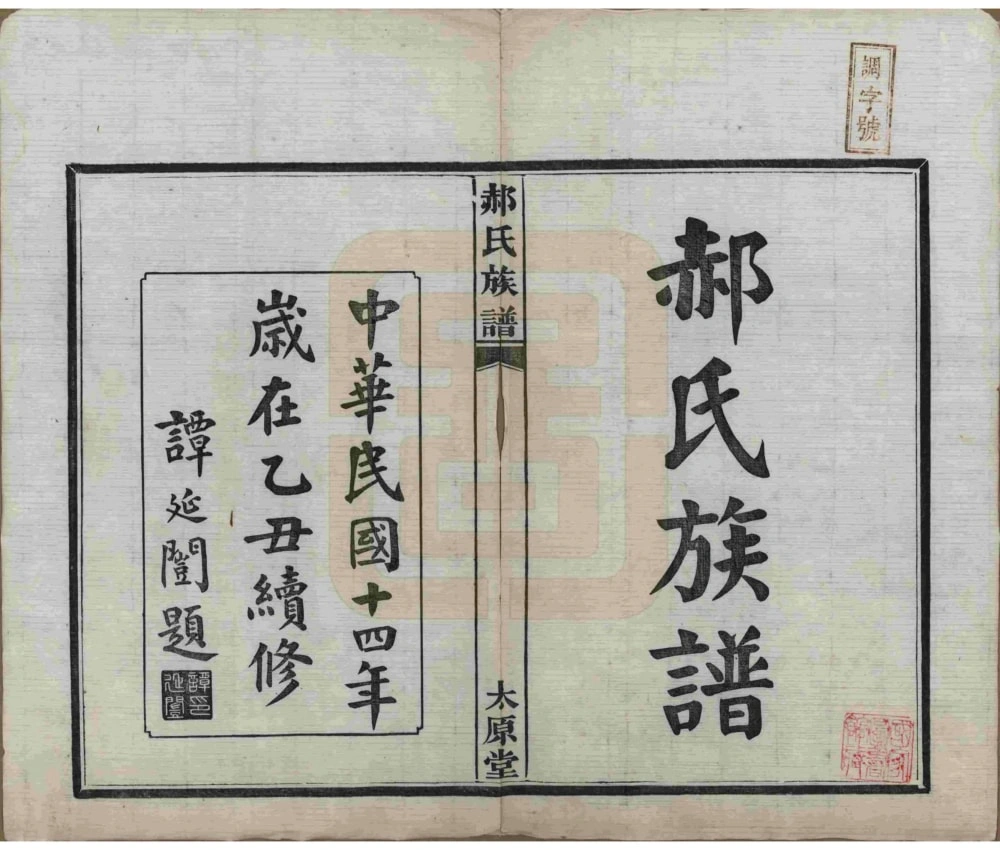 調字號
郝氏族譜
郝氏族譜
太原堂
中華民國十四年
歲在乙丑續修
譚延闓題
譚延闓印